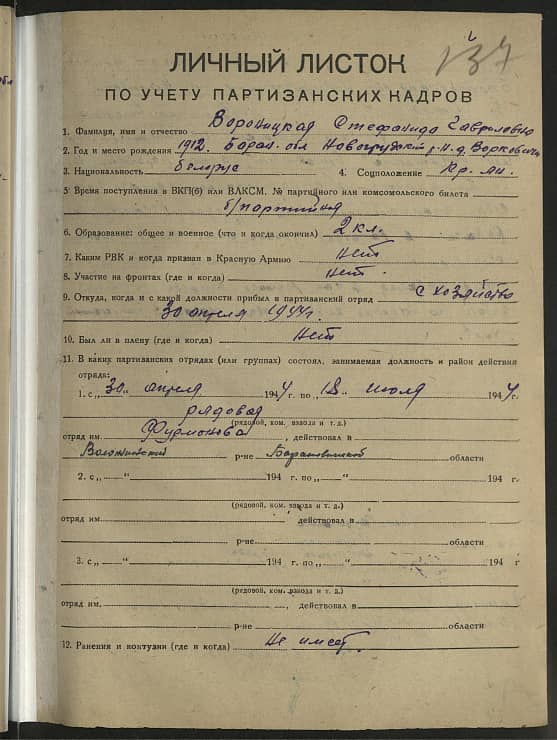 137
ЛИЧНЫЙ ЛИСТОК
ПО УЧЕТУ ПАРТИЗАНСКИХ КАДРОВ
1. Фамилия, имя и отчество Вороницкая Стефанида Гавриловна
2. Год и место рождения 1912. Баран. обл Новогрудский р-н. д. Ворковичи
3. Национальность белорус 4. Соцположение Кр. ин.
5. Время поступления в ВКП(б) или ВЛКСМ. № партийного или комсомольского билета
б/партийная
6. Образование: общее и военное (что и когда окончил) 2 кл.
7. Каким РВК и когда призван в Красную Армию Нет
8. Участие на фронтах (где и когда) Нет.
9. Откуда, когда и с какой должности прибыл в партизанский отряд с хозяйство
30 апреля 1944г.
10. Был ли в плену (где и когда) Нет
11. В каких партизанских отрядах (или группах) состоял, занимаемая должность и район действия
отряда:
1. с „30„ апреля 1944 г. по „18„ июля 1944г.
рядовая
(рядовой, ком. взвода и т. д.)
отряд им. Фурмонова, действовал в
р-не Барановичской области
2. с „ “ 194 г. по „ “ 194 г
(рядовой, ком. взвода и т. д.)
отряд им. действовал в
р-не области
3. с „ “ 194 г. по „ “ 194 г
(рядовой, ком. взвода и т. д.)
отряд им. , действовал в
р-не области
12. Ранения и контузии (где и когда) Не имеет.